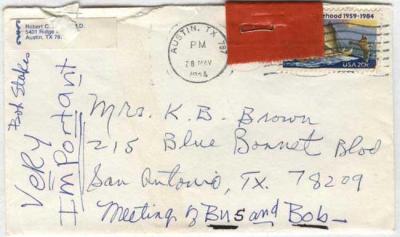 Robert C. D.
5401 Ridge
Austin, TX 78
AUSTIN, TX 787
PM
28 MAY
1984
hood 1959-1984
USA 20c
Bob Stakes
VeRy
ImPortant
Mrs. K. B. Brown
215 Blue Bonnet Blvd
San Antonio, TX. 78209
Meeting of Bus and Bob-